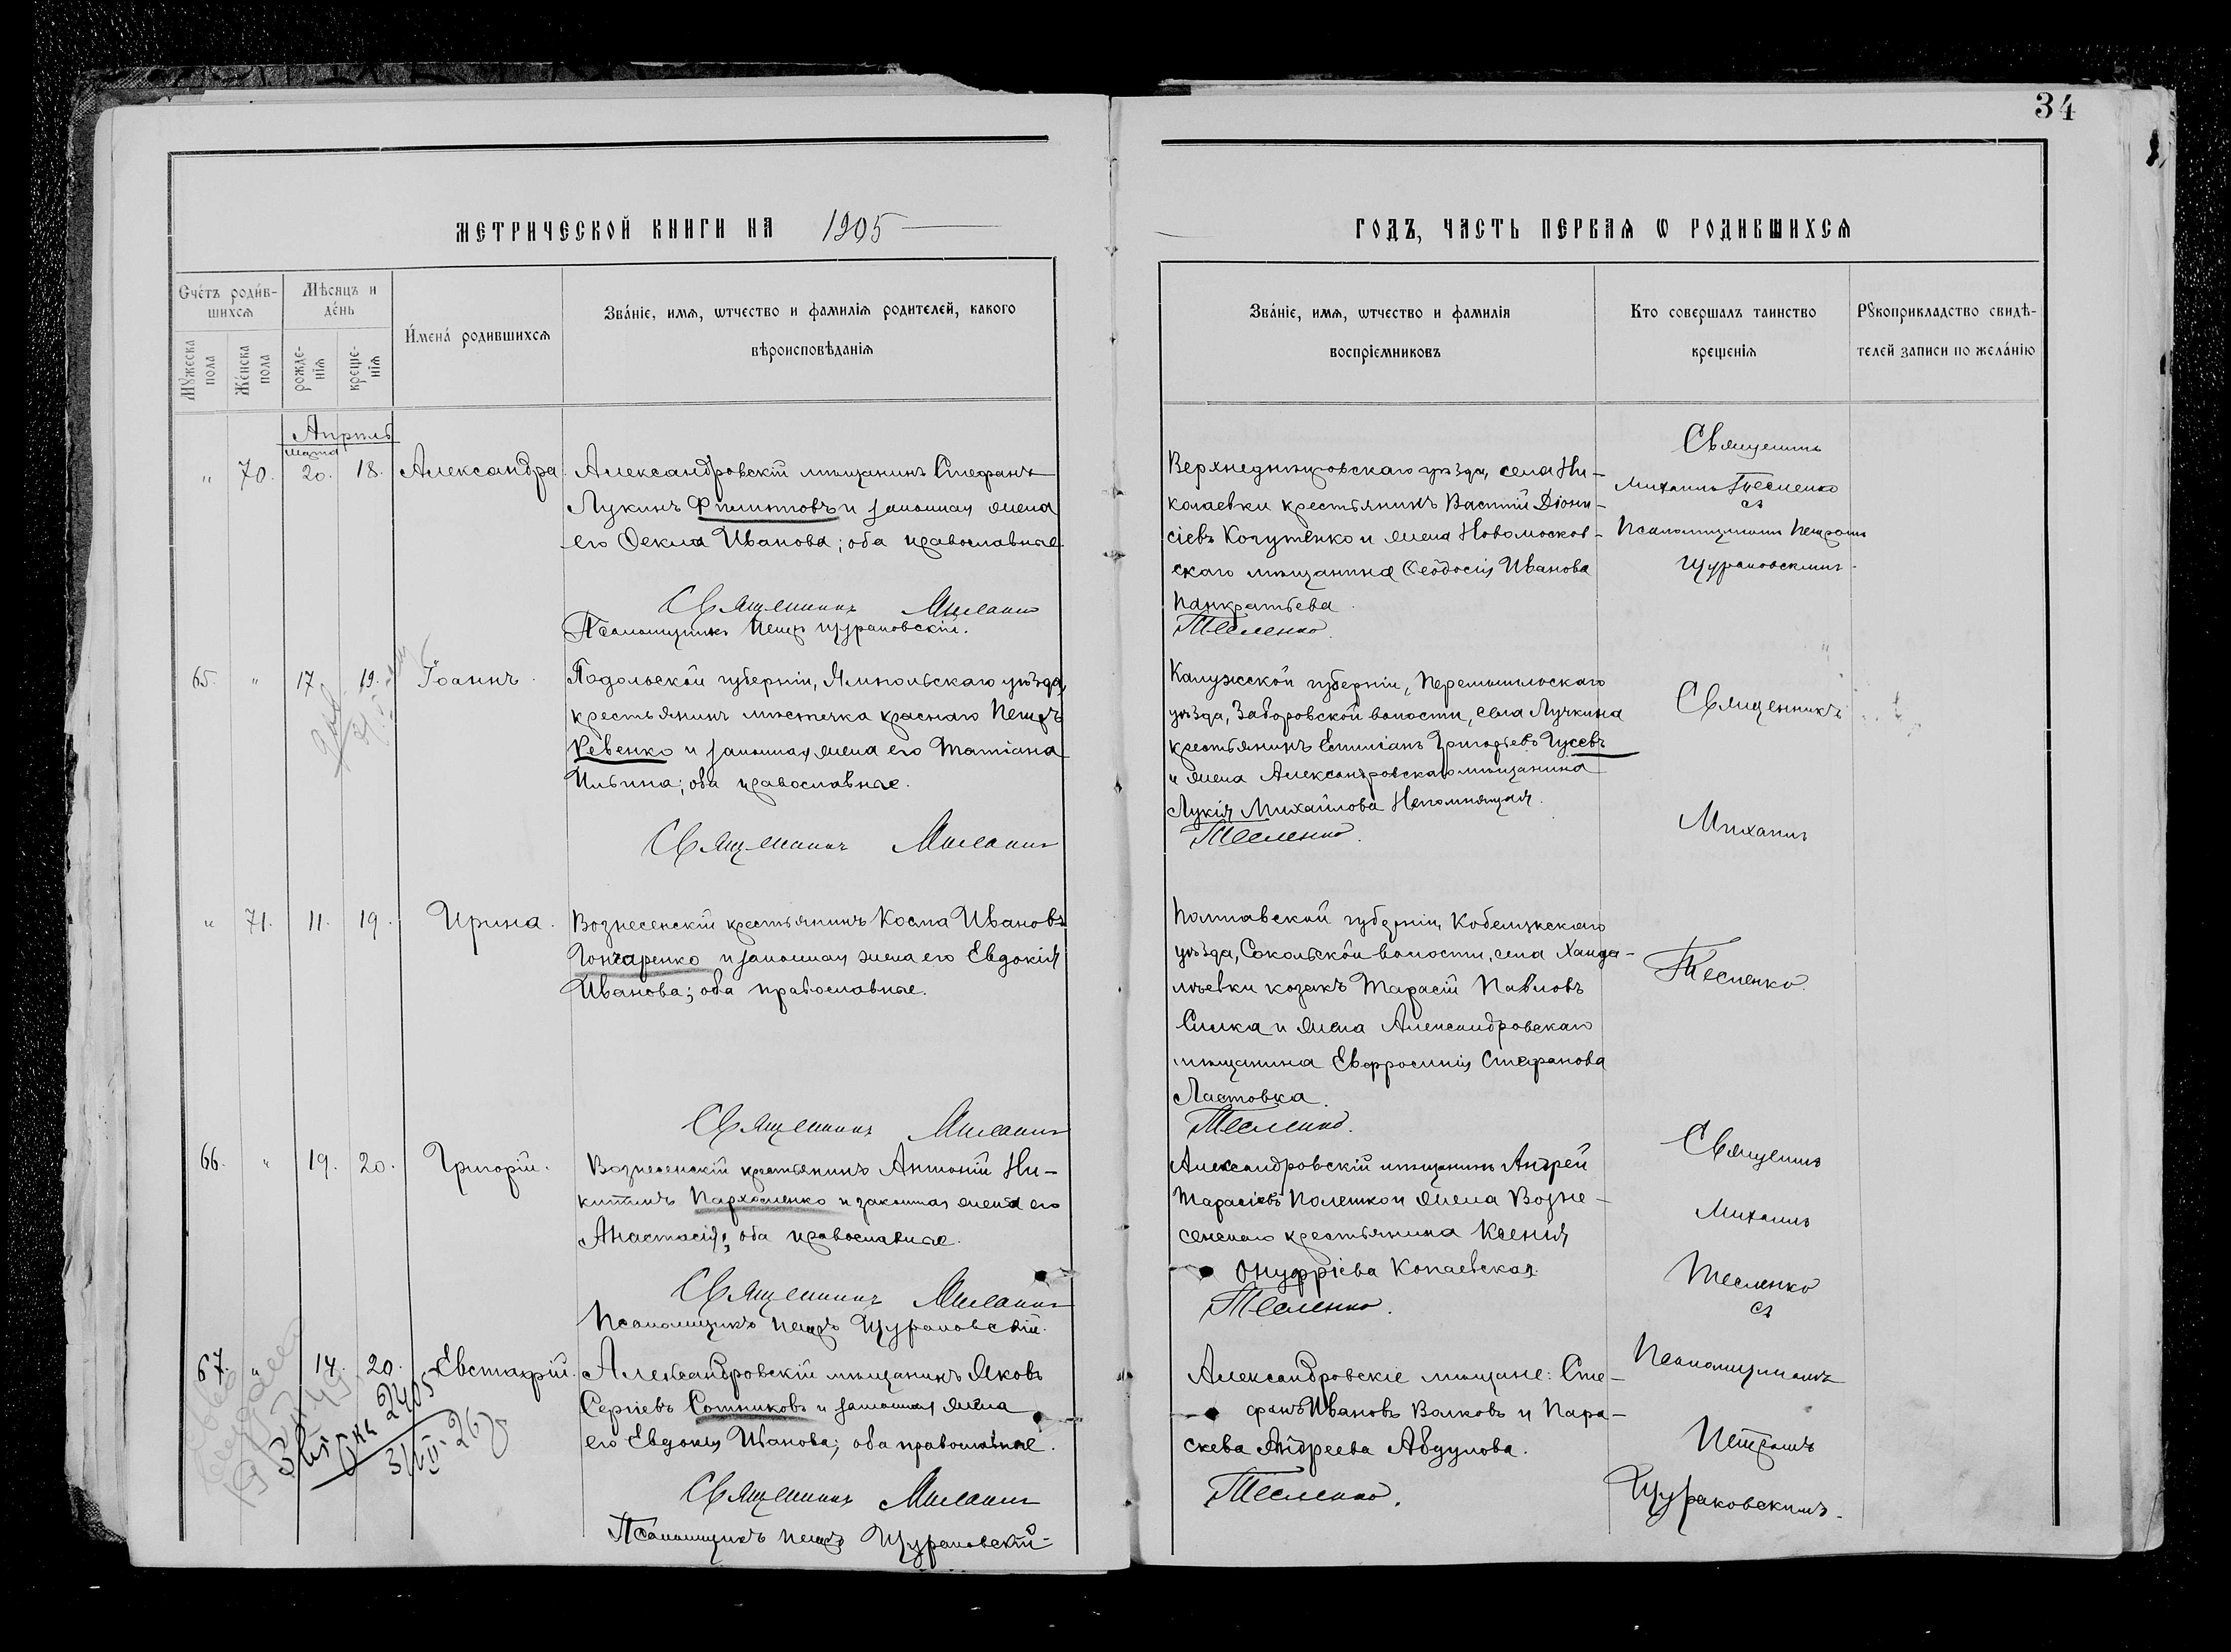 34
МЕТРИЧЕСКОЙ КНИГИ НА 1905
ГОДЪ, ЧАСТЬ ПЕРВАЯ Ѡ РОДИВШИХСЯ
Счетъ родив-
шихся
Мѣсяцъ и
день
Имена родившихся
Званіе, имя, ѡтчество и фамилія родителей, какого
вѣроисповѣданія
Мужеска
пола
Женска
пола
рожде-
нія
креще-
нія
Званіе, имя, ѡтчество и фамилія
воспріемниковъ
Кто совершалъ таинство
крещенія
Рукоприкладство свидѣ-
телей записи по желанію
Апрѣль
марта
" 70. 20. 18. Александра
Александровскій мѣщанинъ Стефанъ
Лукинъ Филиповъ и законная жена
его Ѳекла Иванова; оба православные.
Священникъ
Псаломщикъ Петръ Щураковскій.
Верхнеднѣпровскаго уѣзда, села Ни-
колаевки крестьянинъ Василій Діони-
сіевъ Кочутенко и жена Новомосков-
скаго мѣщанина Ѳеодосія Иванова
Панкратьева.
Тесленко.
Священникъ
Михаилъ Тесленко
съ
Псаломщикомъ Петромъ
Щураковскимъ.
65. " 17. 19. Іоаннъ.
Подольской губерніи, Ямпольскаго уѣзда,
крестьянинъ мѣстечка Краснаго Петръ
Ревенко и законная жена его Татіана
Ильина; оба православные.
Священникъ
Калужской губерніи, Перемышльскаго
уѣзда, Заборовской волости, села Лучкина
крестьянинъ Емиліанъ Григорьевъ Гусевъ
и жена Александровскаго мѣщанина
Лукія Михайлова Непомнящая.
Тесленко.
Священникъ
Михаилъ
" 71. 11. 19. Ирина.
Вознесенскій крестьянинъ Косма Ивановъ
Гончаренко и законная жена его Евдокія
Иванова; оба православные.
Священникъ
Полтавской губерніи, Кобелякскаго
уѣзда, Сокольской волости, села Ханда-
лѣевки козакъ Тарасій Павловъ
и жена Александровскаго
мѣщанина Евфросинія Стефанова
Ластовка.
Тесленко.
Тесленко.
66. " 19. 20. Григорій.
Вознесенскій крестьянинъ Антоній Ни-
китинъ Пархоменко и законная жена его
Анастасія; оба православные.
Священникъ
Псаломщикъ Петръ Щураковскій.
Александровскій мѣщанинъ Андрей
Тарасіевъ Полешко и жена Возне-
сенскаго крестьянина Ксенія
Онуфріева Копаевская.
Тесленко.
Священникъ
Михаилъ
Тесленко
съ
67. " 14. 20. Евстафій.
Александровскій мѣщанинъ Яковъ
Сергіевъ Сотниковъ и законная жена
его Евдокія Иванова; оба православные.
Священникъ
Псаломщикъ Петръ Щураковскій
Александровскіе мѣщане: Сте-
фанъ Ивановъ Волковъ и Пара-
скева Андреева Абдулова.
Тесленко.
Псаломщикомъ
Петромъ
Щураковскимъ.
2405